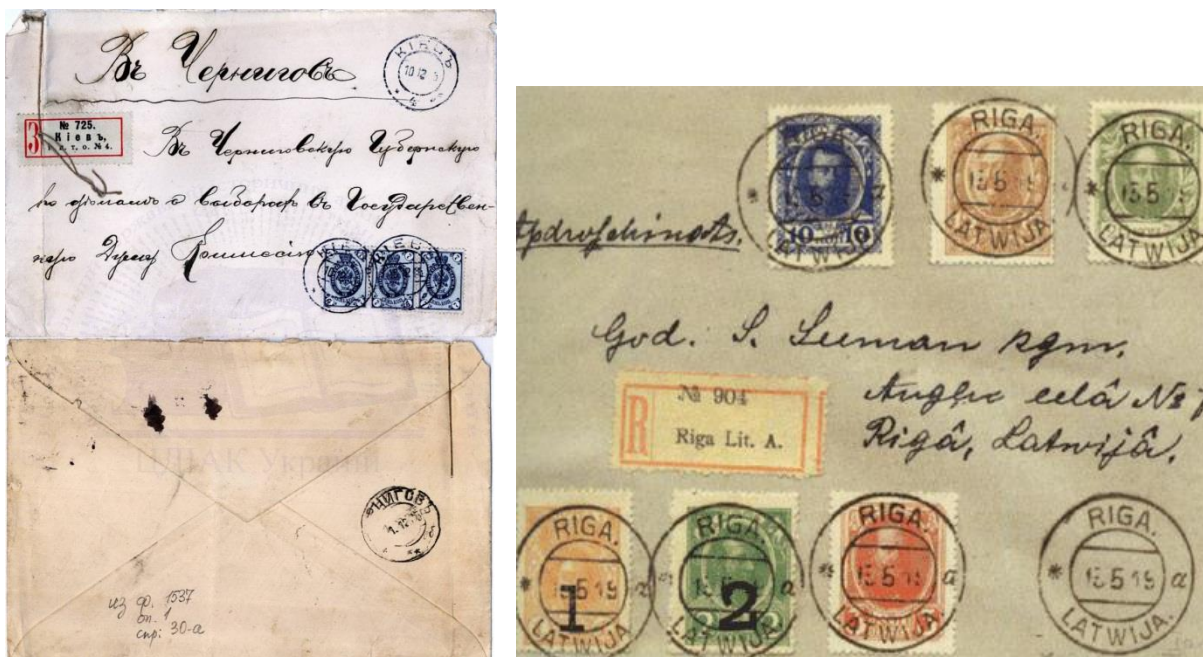 Въ Черниговъ
КІЕВЪ
10 12
№ 725.
Кіевъ,
п. т. о. № 4.
З
Въ Черниговскую Губернскую
по дѣламъ о выборахъ въ Государствен-
ную Думу Комиссію
КІЕВЪ
КІЕВЪ
ЦДІАК України
НИГОВЪ
из ф. 1537
оп. 1
спр: 30-а
RIGA.
15 5
LATWIJA
10 10
RIGA.
15 5 19
LATWIJA
RIGA.
15 5 19
LATWIJA
God. S. Leeman kgm.
Rigâ, Latwijâ.
№ 904
R
Riga Lit. A.
RIGA.
15 5 19 a
LATWIJA
1
RIGA.
15 5 19 a
LATWIJA
2
RIGA.
15 5 19 a
LATWIJA.
RIGA.
15 5 19 a
LATWIJA.